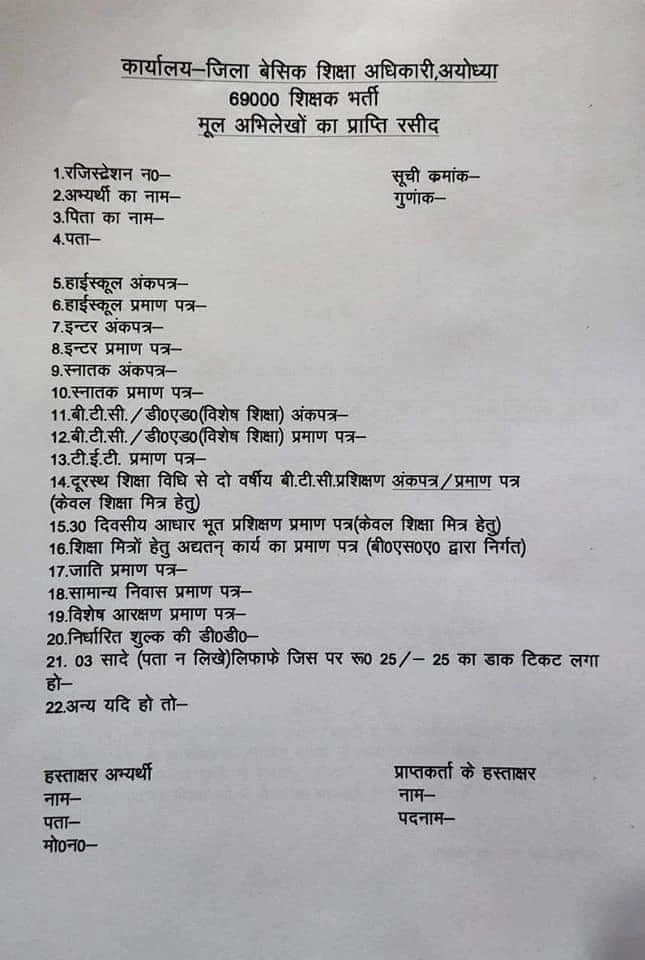 कार्यालय–जिला बेसिक शिक्षा अधिकारी,अयोध्या
69000 शिक्षक भर्ती
मूल अभिलेखों का प्राप्ति रसीद
1.रजिस्ट्रेशन न0– सूची क्रमांक–
2.अभ्यर्थी का नाम– गुणांक–
3.पिता का नाम–
4.पता–
5.हाईस्कूल अंकपत्र–
6.हाईस्कूल प्रमाण पत्र–
7.इन्टर अंकपत्र–
8.इन्टर प्रमाण पत्र–
9.स्नातक अंकपत्र–
10.स्नातक प्रमाण पत्र–
11.बी.टी.सी./डी0एड0(विशेष शिक्षा) अंकपत्र–
12.बी.टी.सी./डी0एड0(विशेष शिक्षा) प्रमाण पत्र–
13.टी.ई.टी. प्रमाण पत्र–
14.दूरस्थ शिक्षा विधि से दो वर्षीय बी.टी.सी.प्रशिक्षण अंकपत्र/प्रमाण पत्र
(केवल शिक्षा मित्र हेतु)
15.30 दिवसीय आधार भूत प्रशिक्षण प्रमाण पत्र(केवल शिक्षा मित्र हेतु)
16.शिक्षा मित्रों हेतु अद्यतन् कार्य का प्रमाण पत्र (बी0एस0ए0 द्वारा निर्गत)
17.जाति प्रमाण पत्र–
18.सामान्य निवास प्रमाण पत्र–
19.विशेष आरक्षण प्रमाण पत्र–
20.निर्धारित शुल्क की डी0डी0–
21. 03 सादे (पता न लिखे)लिफाफे जिस पर रू0 25/– 25 का डाक टिकट लगा
हो–
22.अन्य यदि हो तो–
हस्ताक्षर अभ्यर्थी प्राप्तकर्ता के हस्ताक्षर
नाम– नाम–
पता– पदनाम–
मो0न0–